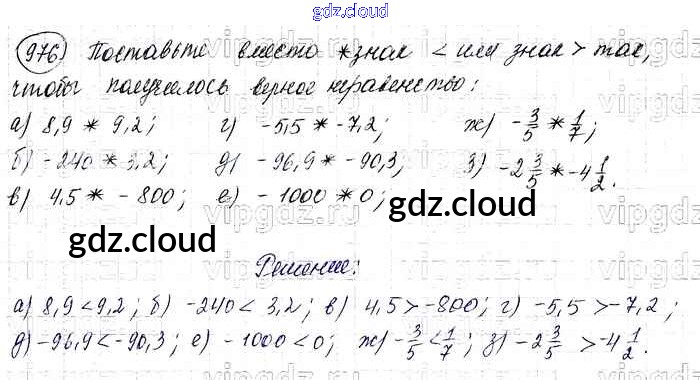 gdz.cloud
976) Поставьте вместо * знак < или знак > так,
чтобы получилось верное неравенство:
а) 8,9 * 9,2; г) -5,5 * -7,2; ж) -3/5 * 1/7;
б) -240 * 3,2; д) -96,9 * -90,3; з) -2 3/5 * -4 1/2.
в) 4,5 * -800; е) -1000 * 0;
gdz.cloud
gdz.cloud
Решение:
а) 8,9 < 9,2; б) -240 < 3,2; в) 4,5 > -800; г) -5,5 > -7,2;
д) -96,9 < -90,3; е) -1000 < 0; ж) -3/5 < 1/7; з) -2 3/5 > -4 1/2.